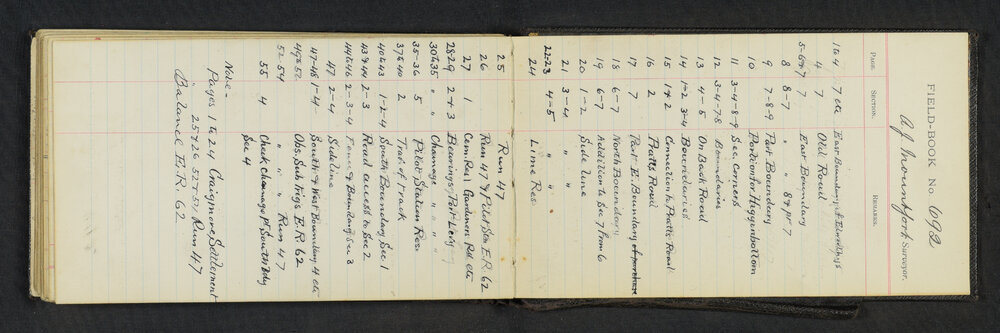 FIELD-BOOK No. 692
A J Mountfort Surveyor.
PAGE. SECTION. REMARKS.
1 to 4 7 etc East Boundary
4 7 Old Road
5-6+7 7 East Boundary
8 8-7 " " 8 & pt 7
9 7-8-9 Part Boundary
10 Portion for Higginbottom
11 3-4-8-9 Sec. Corners
12 3-4-7-8 Boundaries
13 4-5 On Back Road
14 1+2 3+4 Boundaries
15 1+2 Connection to Pratts Road
16 2 Pratts Road
17 7 Part E. Boundary
18 6-7 North Boundary
19 6-7 Addition to Sec 7 from 6
20 1-2 Side Line
21 3-4 " "
22-23 4-5 " "
24 Lime Res.
Run 47
25 " "
26 Run 47 & Pilot Stn E.R. 62
27 1 Cem. Res. Gardiners Rd. etc
28-29 2+3 Bearings Port Levy
30 to 35 " Chainage " "
35-36 5 Pilot Station Res.
37 to 40 2 Trav. of track
40 to 43 1-2-4 South Boundary Sec. 1
43+44 2-3 Road access to Sec 2
44 to 46 2-3-4 Fence & Boundary Sec 3
47 2-4 Side line
47-48 1-4 South & West Boundary 4 etc
49 to 52 Obs. Sub Trigs E.R. 62
52-54 " " " Run 47
55 4 Check Chainage Pt South Bdy
Sec 4
Note-
Pages 1 to 24 Craigmore Settlement
" 25 + 26 52 to 54 Run 47
Balance E.R. 62